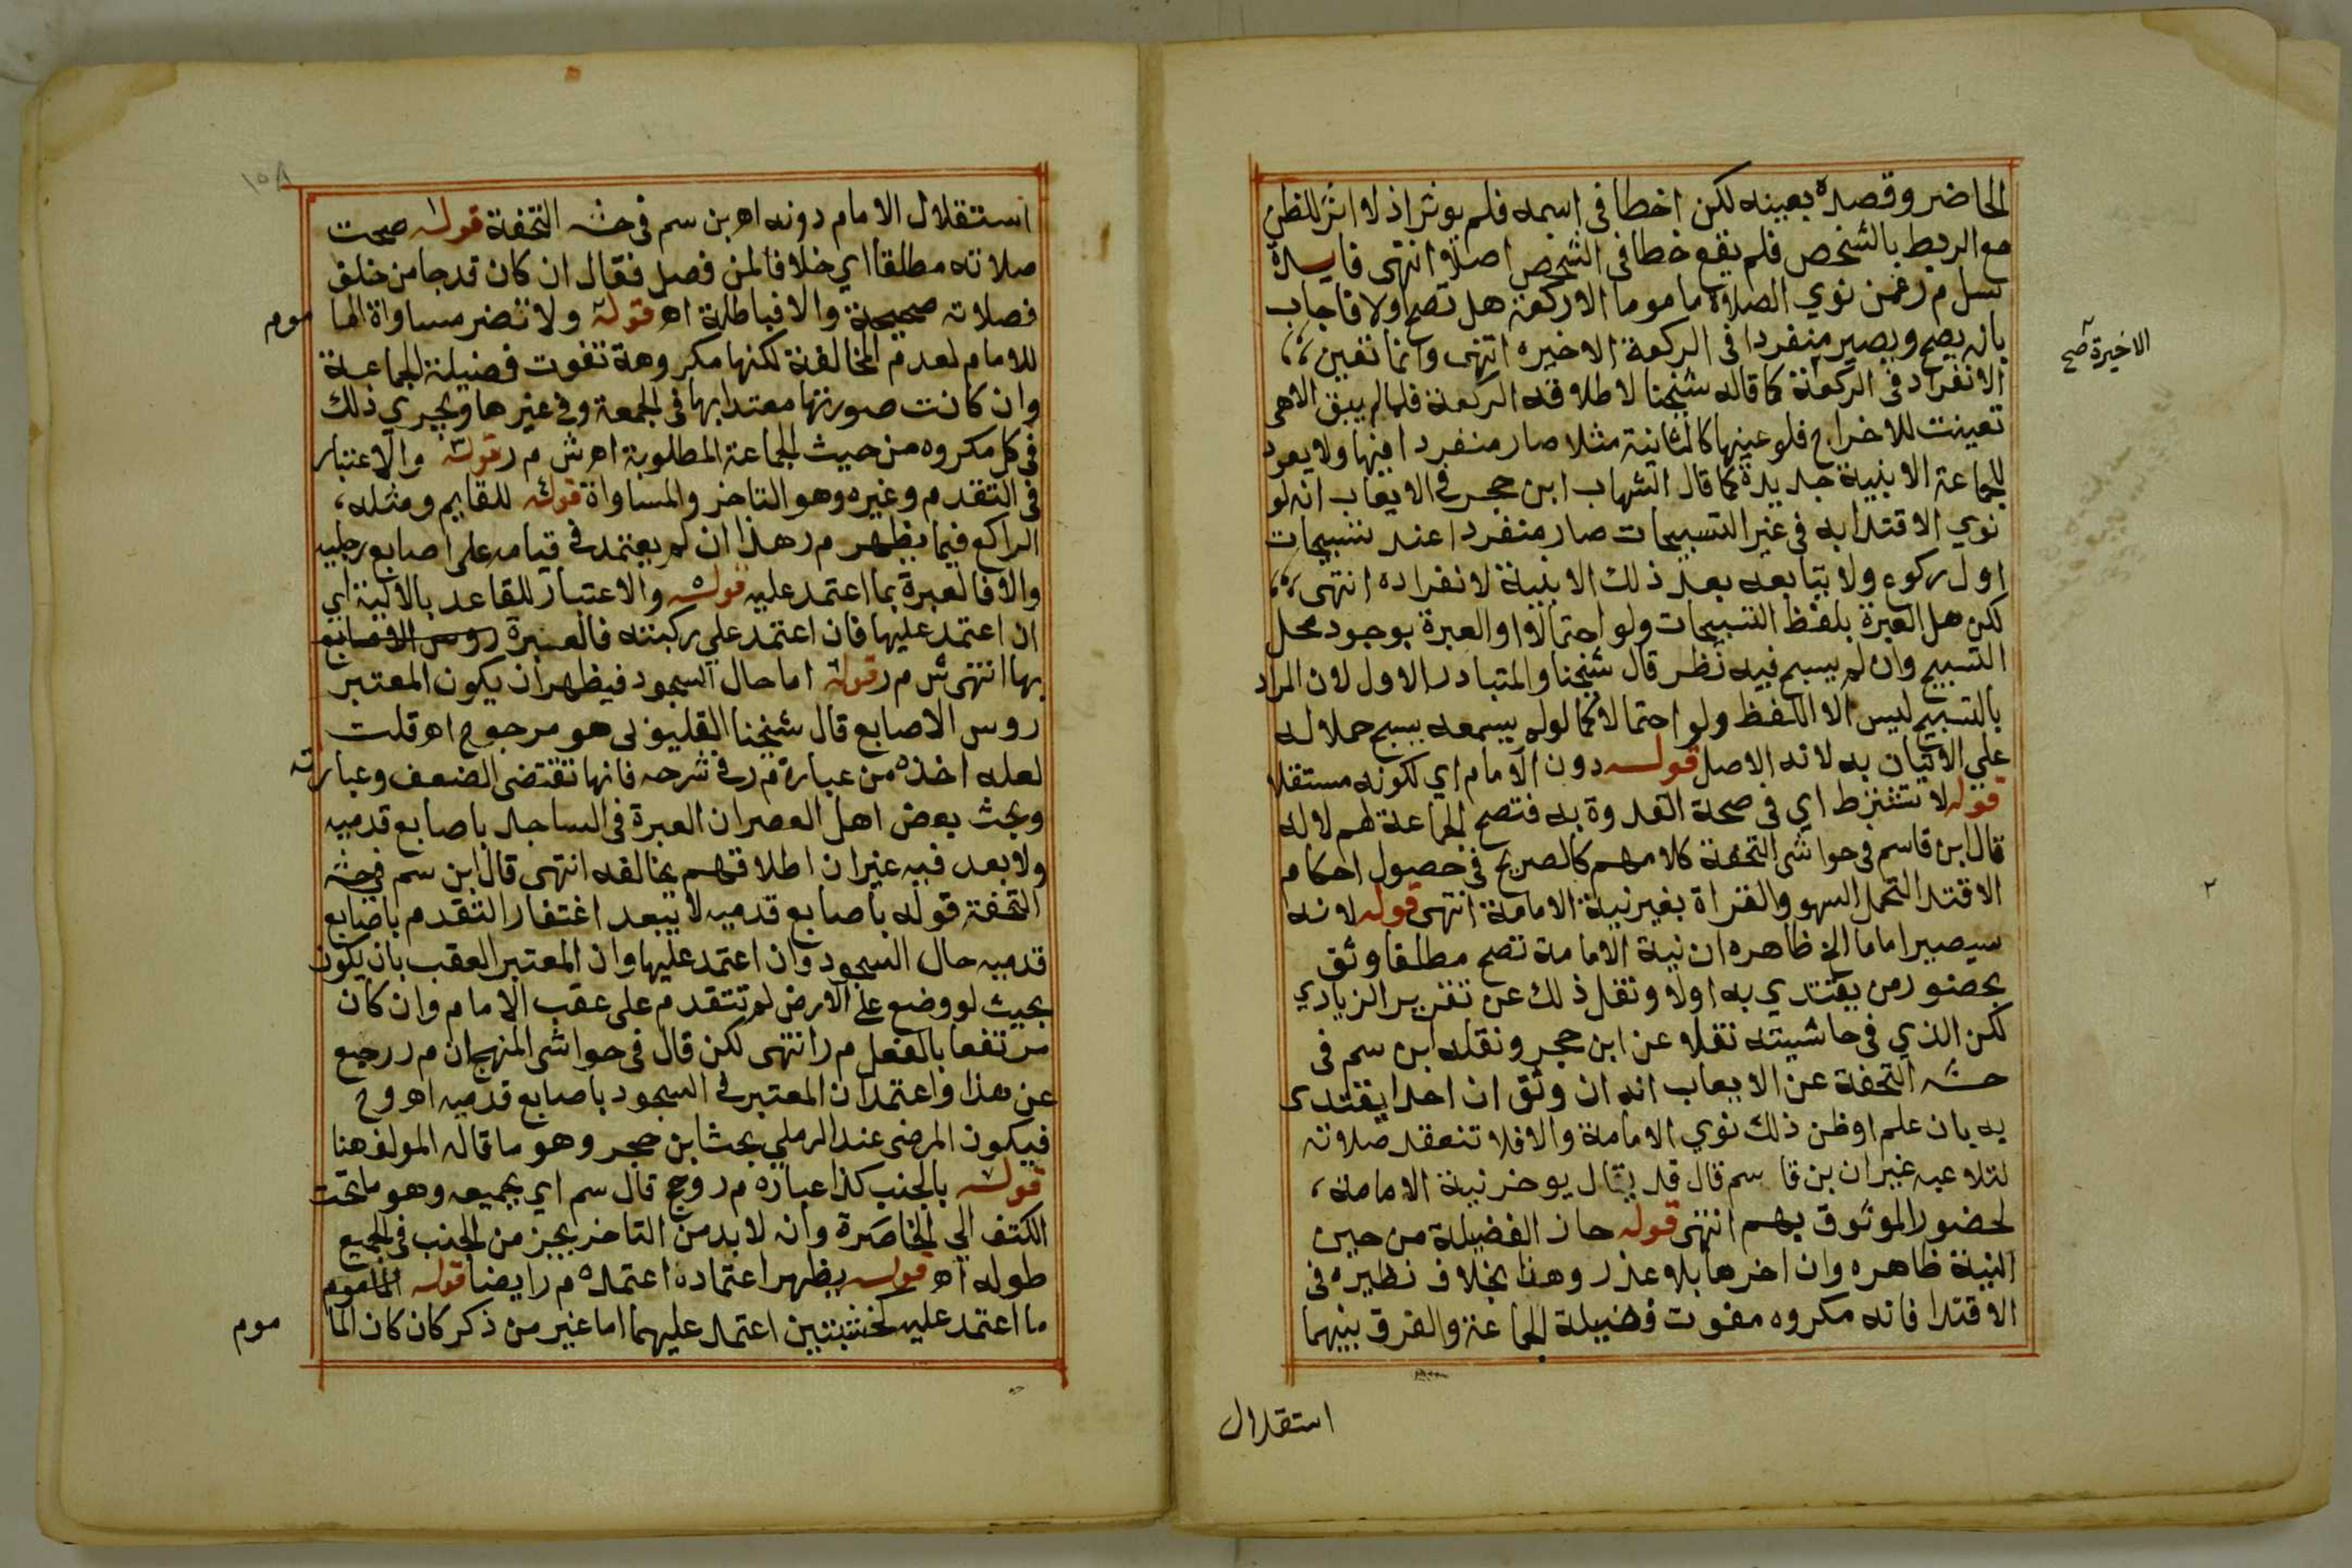 الحاضر وقصده بعينه لكن اخطا في اسمه فلم يوثر اذ لا اثر للظن
مع الربط بالشخص فلم يقع خطا في الشخص اصلا انتهى فايدة
سل م ر عمن نوي الصلاة ماموما الا ركعة هل تصح اولا فاجاب
بانه يصح ويصير منفردا في الركعة الاخيره انتهى وانما تعين
الاخيرة صح
الانفراد في الركعة كما قاله شيخنا لاطلاقه الركعة فلما لم يبق الا هي
تعينت للاخراج فلو عينها كالثانية مثلا صار منفردا فيها ولا يعود
للجماعة الا بنية جديدة كما قال الشهاب ابن حجر في الايعاب انه لو
نوي الاقتدا به في غير التسبيحات صار منفردا عند تسبيحات
اول ركوع ولا يتابعه بعد ذلك الا بنية لانفراده انتهى
لكن هل العبرة بلفظ التسبيحات ولو احتمالا او العبرة بوجود محل
التسبيح وان لم يسبح فيه نظر قال شيخنا والمتبادر الاول لان المراد
بالتسبيح ليس الا اللفظ ولو احتمالا كما لو لم يسمعه يسبح حملا له
علي الاتيان به لانه الاصل قوله دون الامام اي لكونه مستقلا
قوله لا تشترط اي في صحة القدوة به فتصح الجماعة لهم لا له
قال ابن قاسم في حواشي التحفة كلامهم كالصريح في حصول احكام
الاقتدا التحمل السهو والقراة بغير نية الامامة انتهى قوله لانه
٢
سيصير اماما الخ ظاهره ان نية الامامة تصح مطلقا وثق
بحضور من يقتدي به اولا ونقل ذلك عن تقرير الزيادي
لكن الذي في حاشيته نقلا عن ابن حجر ونقله ابن سم في
حشه التحفة عن الايعاب انه ان وثق ان احدا يقتدي
به بان علم او ظن ذلك نوي الامامة والا فلا تنعقد صلاته
لتلاعبه غير ان بن قاسم قال قد يقال يوخر نية الامامة
لحضور الموثوق بهم انتهى قوله حاز الفضيلة من حين
النية ظاهره وان اخرها بلا عذر وهذا بخلاف نظيره في
الاقتدا فانه مكروه مفوت فضيلة الجماعة والفرق بينهما
استقلال
١٥٨
استقلال الامام دونه اه بن سم في حشه التحفة قوله صحت
صلاته مطلقا اي خلافا لمن فصل فقال ان كان قد جا من خلف
فصلاته صحيحة والا فباطلة اه قوله ولا تضر مساواة الما
موم
للامام لعدم المخالفة لكنها مكروهة تفوت فضيلة الجماعة
وان كانت صورتها معتدا بها في الجمعة وفي غيرها ويجري ذلك
في كل مكروه من حيث الجماعة المطلوبة اه ش م ر قوله والاعتبار
في التقدم وغيره وهو التاخر والمساواة قوله للقايم ومثله
الراكع فيما يظهر م ر هذا ان لم يعتمد في قيامه على اصابع رجليه
والا فالعبرة بما اعتمد عليه قوله والاعتبار للقاعد بالالية اي
ان اعتمد عليها فان اعتمد علي ركبته فالعبرة روس الاصابع
بها انتهى ش م ر قوله اما حال السجود فيظهر ان يكون المعتبر
روس الاصابع قال شيخنا القليوبي هو مرجوح اه قلت
لعله اخذه من عبارة م ر في شرحه فانها تقتضي الضعف وعبارته
وبحث بعض اهل العصر ان العبرة في الساجد باصابع قدميه
ولا بعد فيه غير ان اطلاقهم يخالفه انتهى قال ابن سم في حشه
التحفة قوله باصابع قدميه لا يبعد اغتفار التقدم باصابع
قدميه حال السجود وان اعتمد عليها وان المعتبر العقب بان يكون
بحيث لو وضع على الارض لم تتقدم على عقب الامام وان كان
مرتفعا بالفعل م ر انتهى لكن قال في حواشي المنهج ان م ر رجع
عن هذا واعتمد ان المعتبر في السجود باصابع قدميه اه وح
فيكون المرضي عند الرملي بحث ابن حجر وهو ما قاله المولف هنا
قوله بالجنب كذا عبارة م ر وحج قال سم اي بجميعه وهو ما تحت
الكتف الي الخاصرة وانه لا بد من التاخر بجز من الجنب في الجميع
طوله اه قوله يظهر اعتماده اعتمده م ر ايضا قوله الماموم
ما اعتمد عليه كخشبتين اعتمد عليهما اما غير من ذكر كان كان الما
موم